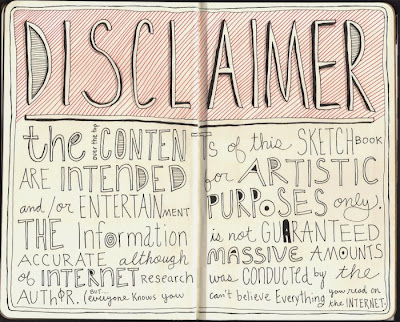 DISCLAIMER
the over the top CONTENTS of this SKETCHBOOK
ARE INTENDED for ARTISTIC
and/or ENTERTAINment PURPOSES only.
THE Information is not GUARANTEED
ACCURATE although MASSIVE AMOUNTS
of INTERNET Research was CONDUCTED by the
AUTHOR. (BUT... everyone knows you can't believe Everything you read on the INTERNET.